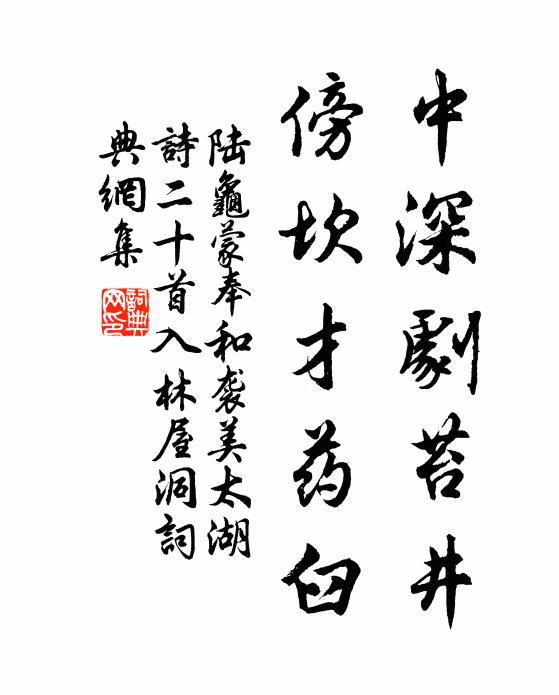 中深劇苔井
傍坎才药臼
陆龜蒙奉和袭美太湖
詩二十首入林屋洞詞
典網集
詞典
网印